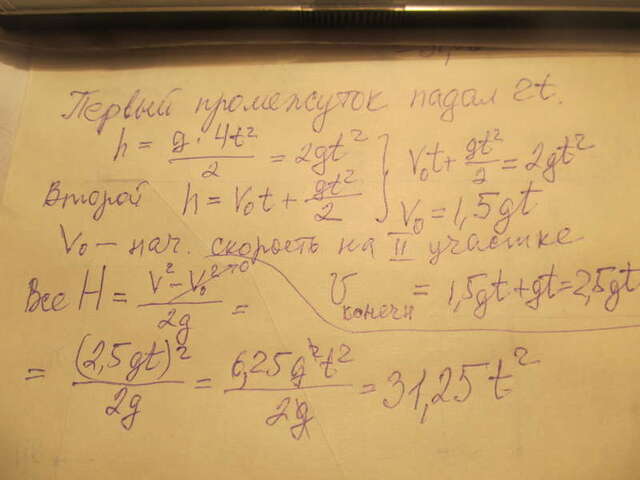 Первый промежуток падал 2t.
h = g·4t²/2 = 2gt² } V₀t + gt²/2 = 2gt²
Второй h = V₀t + gt²/2 } V₀ = 1,5gt
V₀ – нач. скорость на II участке
Все H = (V² – V₀²→0)/2g = V конечн = 1,5gt + gt = 2,5gt
= (2,5gt)²/2g = 6,25g²t²/2g = 31,25 t²